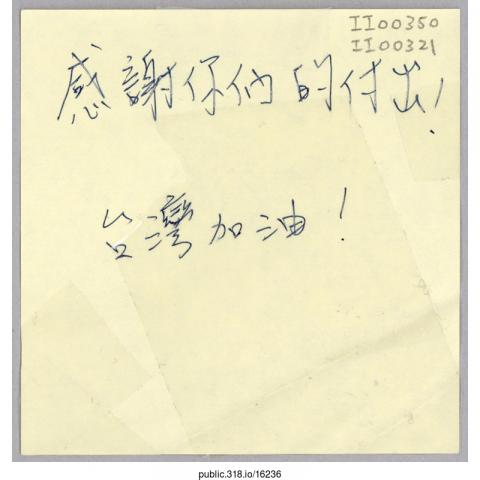 II00350
II00321
感謝你們的付出!
台灣加油!
public.318.io/16236